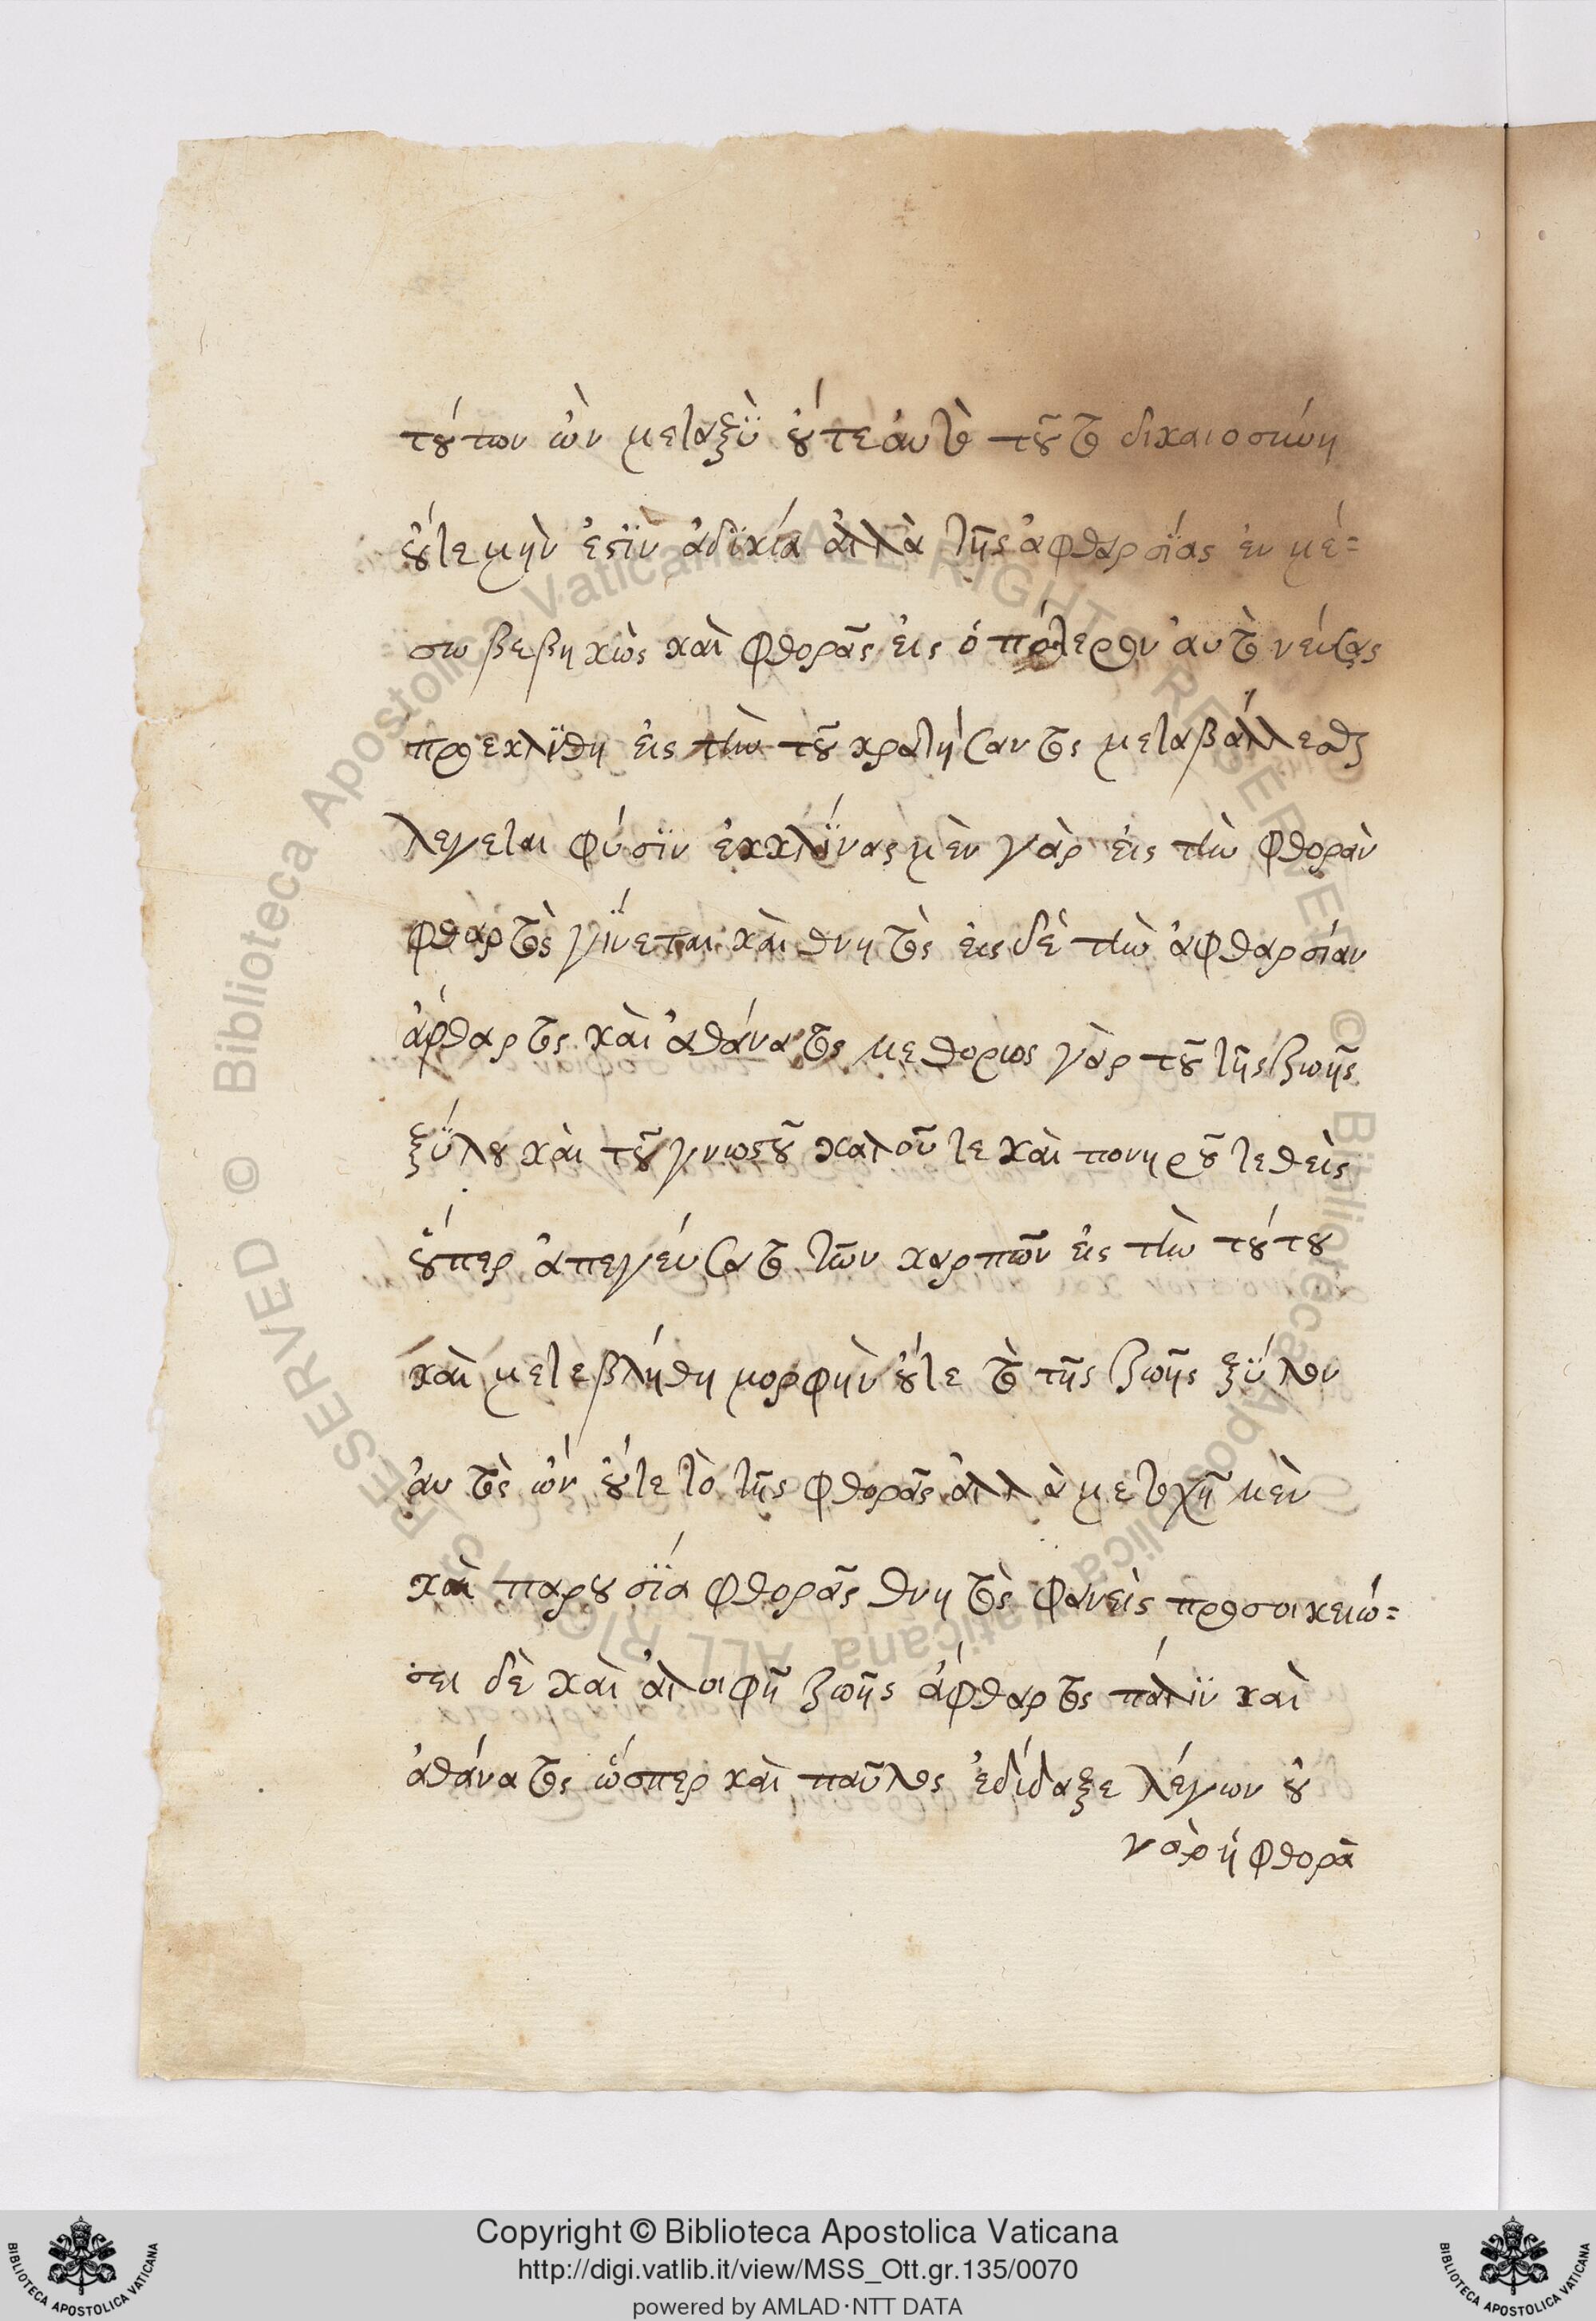 τούτων ὢν μεταξὺ οὔτε αὐτὸ τοῦτο δικαιοσύνη
οὔτε μὴν ἐστὶν ἀδικία ἀλλὰ τῆς ἀφθαρσίας ἐν μέ=
σω βεβηκὼς καὶ φθορᾶς εἰς ὁπότερον αὐτὸ νεύσας
προεκλίθη εἰς τὴν τοῦ κρατήσαντος μεταβάλλεσθαι
λεγεται φύσιν ἐκκλίνας μὲν γὰρ εἰς τὴν φθορὰν
φθαρτὸς γίνεται καὶ θνητὸς εἰς δὲ τὴν ἀφθαρσίαν
ἄφθαρτος καὶ ἀθάνατος μεθοριος γὰρ τοῦ τῆς ζωῆς
ξύλου καὶ τοῦ γνωστοῦ καλοῦ τε καὶ πονηροῦ τεθεὶς
οὗπερ ἀπεγεύσατο τῶν καρπῶν εἰς τὴν τούτου
καὶ μετεβλήθη μορφὴν οὔτε τὸ τῆς ζωῆς ξύλον
αὐτὸς ὢν οὔτε τὸ τῆς φθορᾶς ἀλλὰ μετοχῆ μὲν
καὶ παρουσία φθορᾶς θνητὸς φανεὶς προσοικειώ=
σει δὲ καὶ ἀλοιφῆ ζωῆς ἄφθαρτος πάλιν καὶ
ἀθάνατος ὥσπερ καὶ παῦλος ἐδίδαξε λέγων οὐ
γὰρ ἡ φθορὰ
Copyright © Biblioteca Apostolica Vaticana
http://digi.vatlib.it/view/MSS_Ott.gr.135/0070
powered by AMLAD·NTT DATA